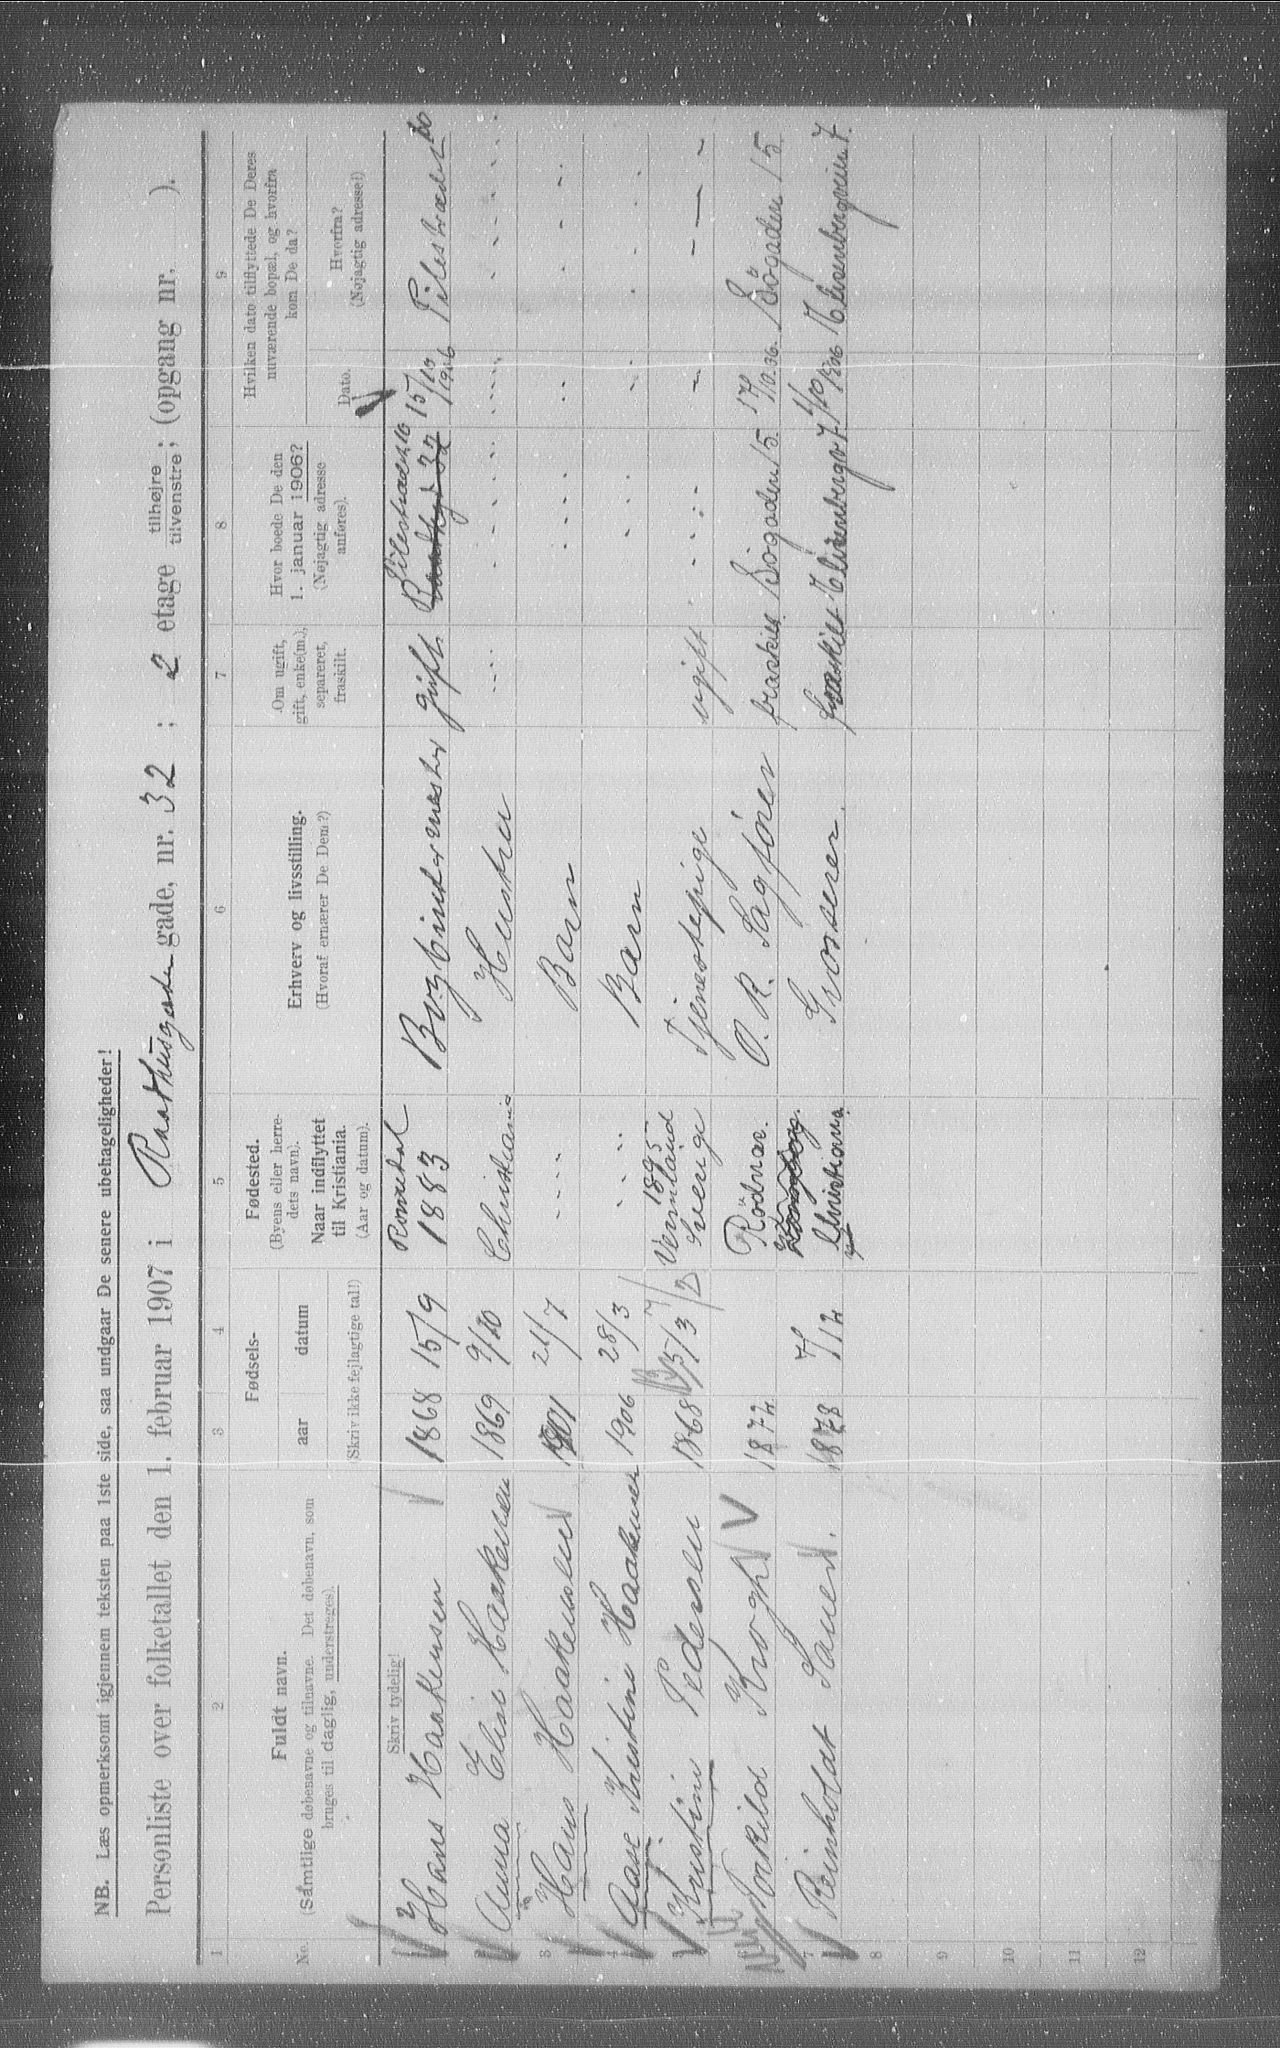 NB. Læs opmerksomt igjennem teksten paa 1ste side, saa undgaar De senere ubehageligheder!
Personliste over folketallet den 1. februar 1907 i Raathusgaden gade, nr. 32 ; 2 etage tilhøjre tilvenstre ; (opgang nr. ).
1 2 3 4 5 6 7 8 9
No. Fuldt navn. (Samtlige døbenavne og tilnavne. Det døbenavn, som bruges til daglig, understreges).
Fødsels- aar datum (Skriv ikke fejlagtige tal!)
Fødested. (Byens eller herredets navn). Naar indflyttet til Kristiania. (Aar og datum).
Erhverv og livsstilling. (Hvoraf ernærer De Dem?)
Om ugift, gift, enke(m.), separeret, fraskilt.
Hvor boede De den 1. januar 1906? (Nøjagtig adresse anføres).
Hvilken dato tilflyttede De Deres nuværende bopæl, og hvorfra kom De da?
Dato. Hvorfra? (Nøjagtig adresse!)
Skriv tydelig!
Hans Haakensen 1868 15/9 1883 Bogbindermester gift Pilestrædet 15/10 1906 Pilestrædet
Anna Elise Haakensen 1869 9/10 Christiania Hustru
3 Hans Haakensen 1901 21/7 Barn
4 Aase Kristine Haakensen 1906 28/3 Barn
Kristine Pedersen 1868 15/3 1895 Vermland Sverige Tjenestepige ugift
Torkild Krogh 1872 Rödnæs. O. R. Sagfører fraskilt Bogaden 15 17/10.06. Bogaden 15
7 Reinholdt 1878 7/12 Christiania Grosserer fraskilt Elisenbergv 7 1/10 1906 Elisenbergveien 7.
8
9
10
11
12